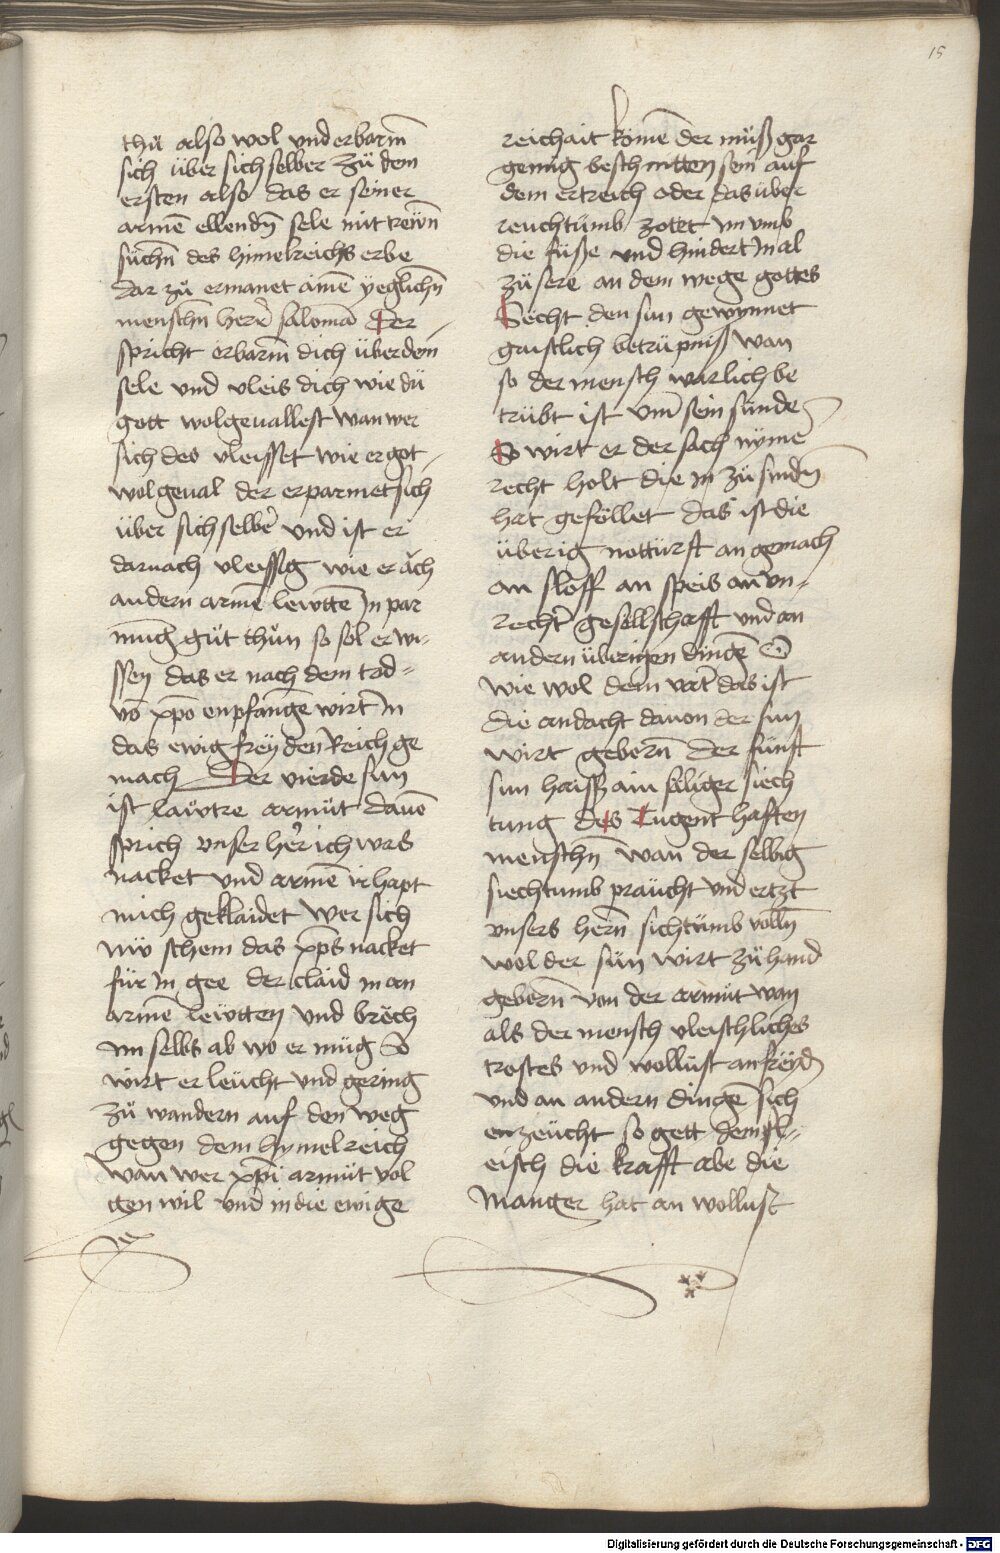 15
thü also wol und erbarm̄
sich über sich selber Zü dem
ersten also das er seiner
armē ellendn̄ sele mit trewn̄
suchn̄ des himelreichs erbe
dar zü ermanet ainē yeglichn̄
menschn̄ herr̄ salomā Der
spricht erbarm̄ dich über dein
sele und vleis dich wie dü
gott wolgeuallest wan wer
sich des vleisset wie er got
wolgeual der erparmet sich
über sich selber̄ und ist er
darnach vleissig wie er äch
andern armē lewttē In par
mūg güt thün so sol er wi-
ssen das er nach dem tod-
vō xp̄o enpfangē wirt In
das ewig freyden Reich ge
mach Der vierde sun
ist lawtre armüt dauō
sprich vnser her̄ ich was
nacket und armē ir hapt
mich geklaidet Wer sich
nw schem das xp̄s nacket
für In gee der claid In an
armē lewtten und brëch
im selbs ab wo er müg So
wirt er leücht und gering
zü wandern auf den weg
gegen dem hymelreich
wan wer xp̄i armüt vol
gen wil und in die ewige
reichait komē der müß gar
genüg beschnitten sein auf
dem ertreich oder das über
reuchtumb zotet im vmb
die füße und hindert In al
zü sere an dem wege gottes
Secht den sun gewynnet
gaistlich betrüpniß wan
so der mensch warlich be
trübt ist vm̄ sein sünde
So wirt er der sach nymē
recht holt die In zü sündn̄
hat geföllet das ist die
überig notturft an gemach
an sloff an speis an vn-
rechtr̄ gesellschafft und an
andern überigen dingē O
wie wol dem vatr̄ das ist
die andacht dauon der sun
wirt gebern̄ Der fünft
sun haißt ain säliger siech
tung des Tugent haften
menschn̄ wan der selbig
siechtumb praücht und ertzt
vnsers hern̄ sichtümb volln̄
wol der sün wirt zühand
gebern̄ von der armüt wan
als der mensch vleischliches
trostes und wollust an freyd
und an andern dingē sich
enzeücht so gett dem fl-
eisch die krafft abe die
manger hat an wollust
Digitalisierung gefördert durch die Deutsche Forschungsgemeinschaft - DFG